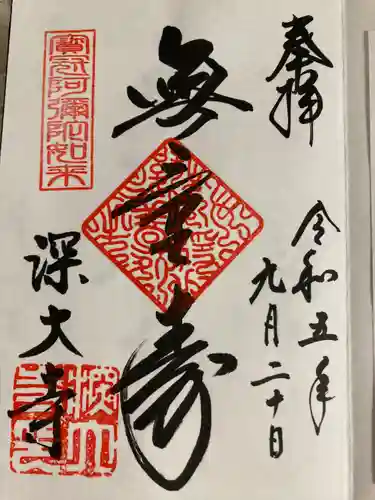 奉拝
令和五年
九月二十日
無量寿
寶冠阿彌陀如来
深大寺